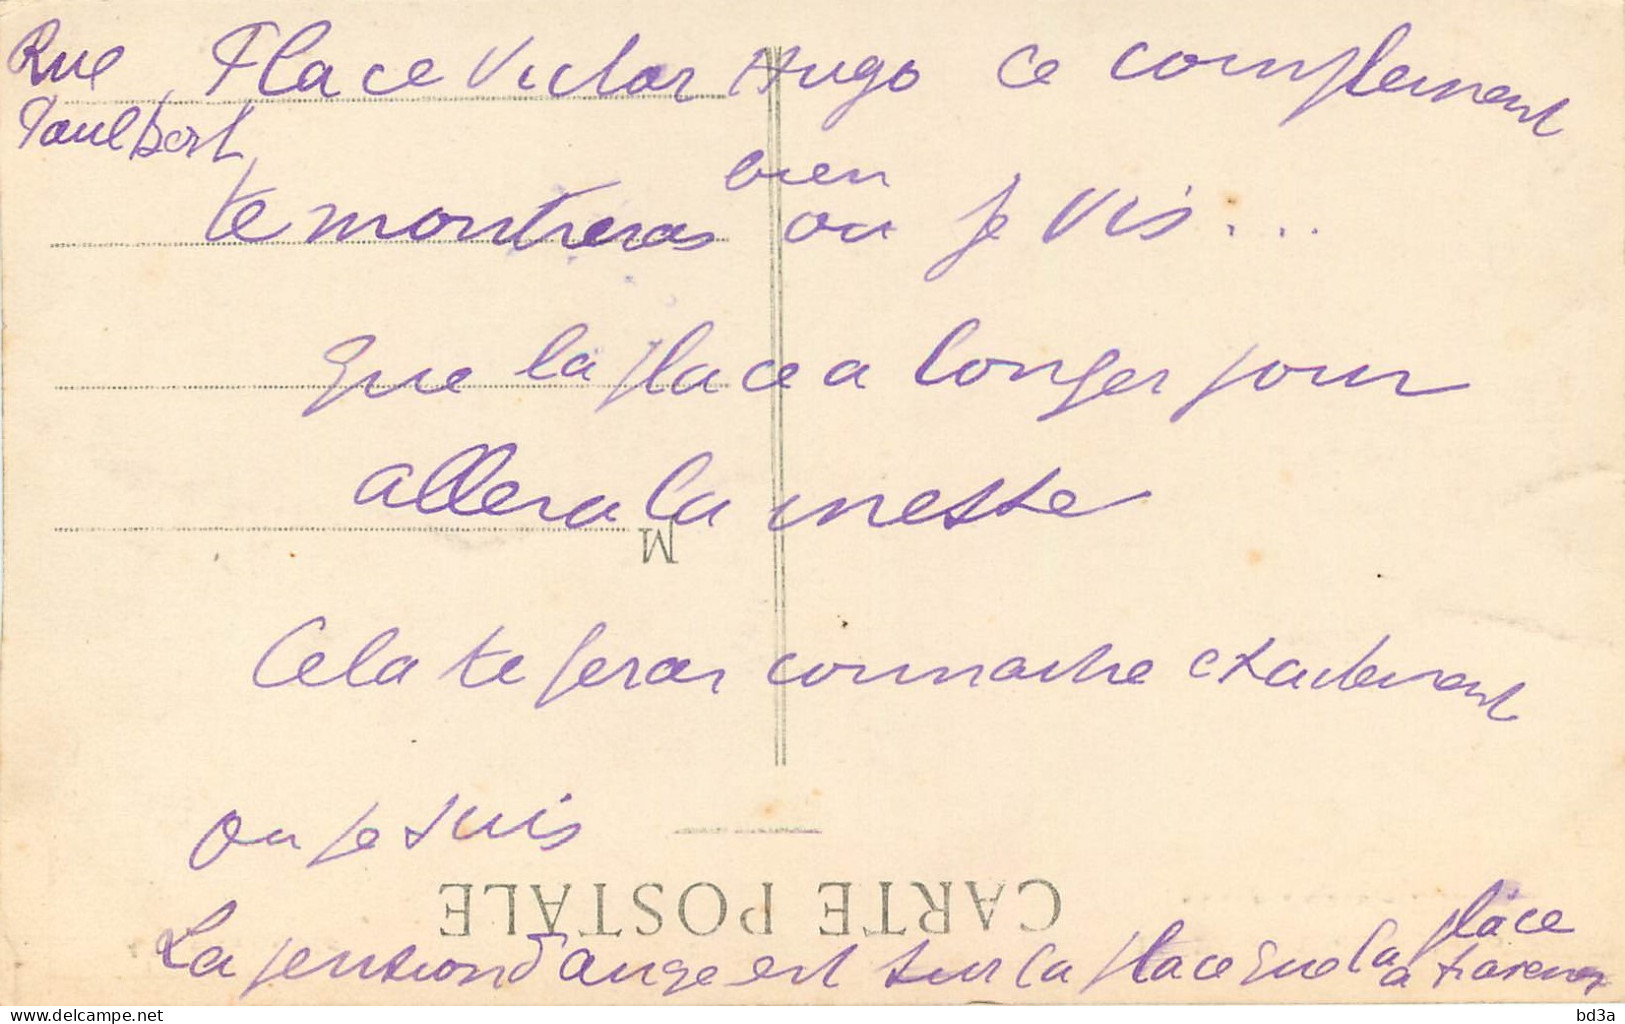 Rue Place Victor Hugo ce complement
Paul Bert
bien
te montreras ou je vis...
que la place a longer pour
aller a la messe
Cela te feras connaitre exactement
ou je suis
CARTE POSTALE
M
place
La pension d'ange est sur la place que la a traverser
delcampe.net
bd3a